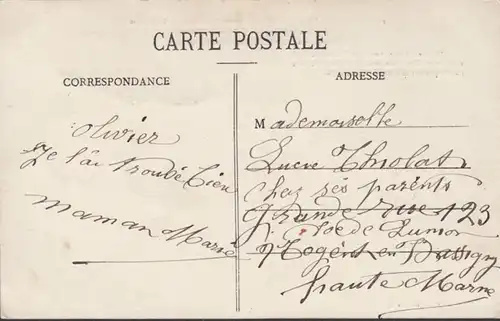 CARTE POSTALE
CORRESPONDANCE
Olivier
Je l'ai trouvé bien
maman Marie
ADRESSE
Mademoiselle
Thiolat
chez ses parents
grande rue 123
Nogent en Bassigny
haute Marne